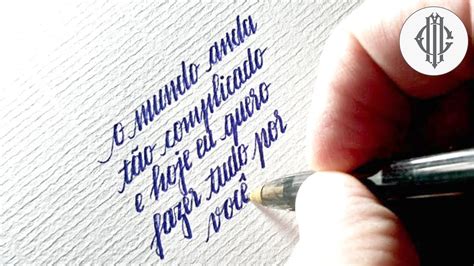 o mundo anda
tão complicado
e hoje eu quero
fazer tudo por
você